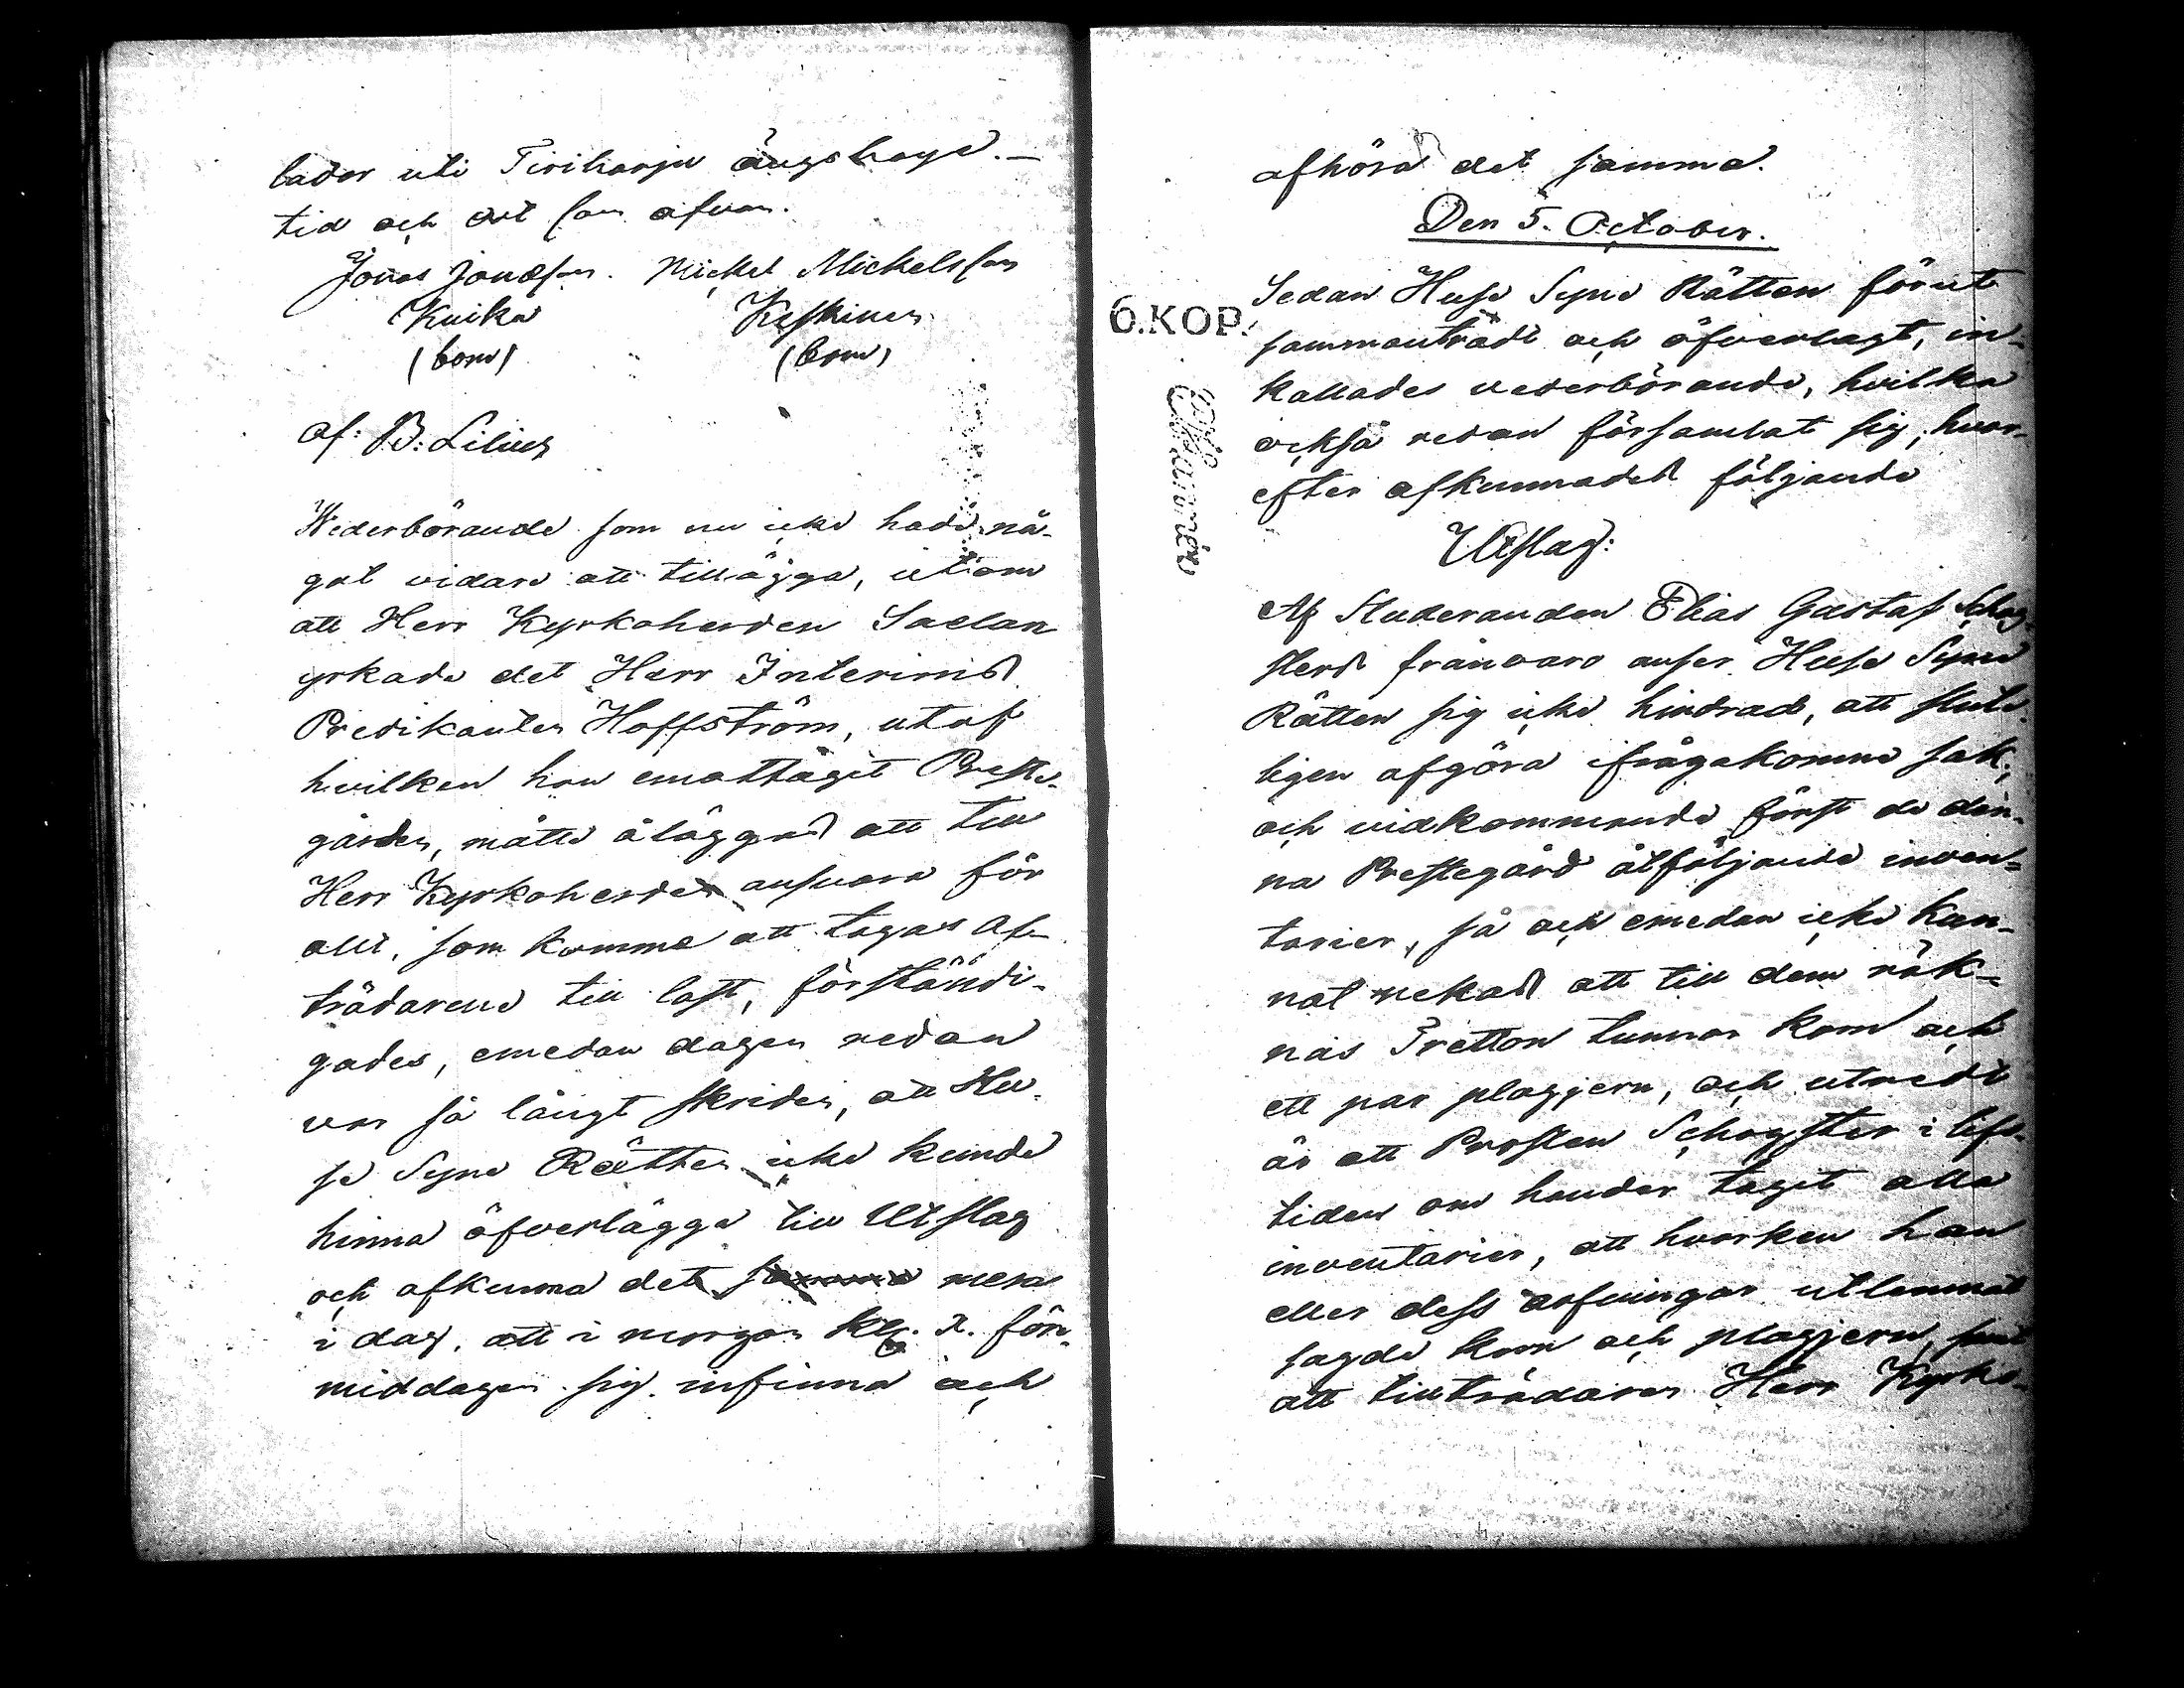 lador uti Tiriharju ängshage.—
tid och ort som ofvan.
Jonas Jonasson. Mickel Mickelsson
Kuika Keskinen
(bom) (bom)
af: B: Lilius
Wederbörande som nu icke hade nå-
got vidare att tillägga, utom
att Herr Kyrkoherden Saelan
yrkade det Herr Interims
Predikanten Hoffström, utaf
hvilken han emottagit Preste-
gården, måtte åläggas att till
Herr Kyrkoherden ansvara för
allt, som komme att tagas af-
trädarene till last, förständi-
gades, emedan dagen redan
var så långt skriden, att Hu-
se Syne Rätten icke kunde
hinna öfverlägga till Utslag
och afkunna det samma mera
i dag, att i morgon kl. X. för-
middagen sig infinna och
afhöra det samma.
Den 5. October.
Sedan Huse Syne Rätten förut
sammanträdt och öfverlagt, in-
kallades vederbörande, hvilka
också redan församlat sig, hvar-
efter afkunnades följande
Utslag:
Af Studeranden Elias Gustaf Schog-
sters frånvaro anser Huse Syne
Rätten sig icke hindrad, att slute-
ligen afgöra ifrågakomne sak;
och vidkommande först de den-
na Prestegård åtföljande inven-
tarier, så och emedan icke kun-
nat nekas att till dem räk-
nas Tretton tunnor korn och
ett par plogjern, och utredt
är att Prosten Schogster i lifs-
tiden om händer tagit alla
inventarier, att hvarken han
eller dess arfvingar utlemnat
sagde korn och plogjern, samt
att tillträdaren Herr Kyrko-
6.KOP.